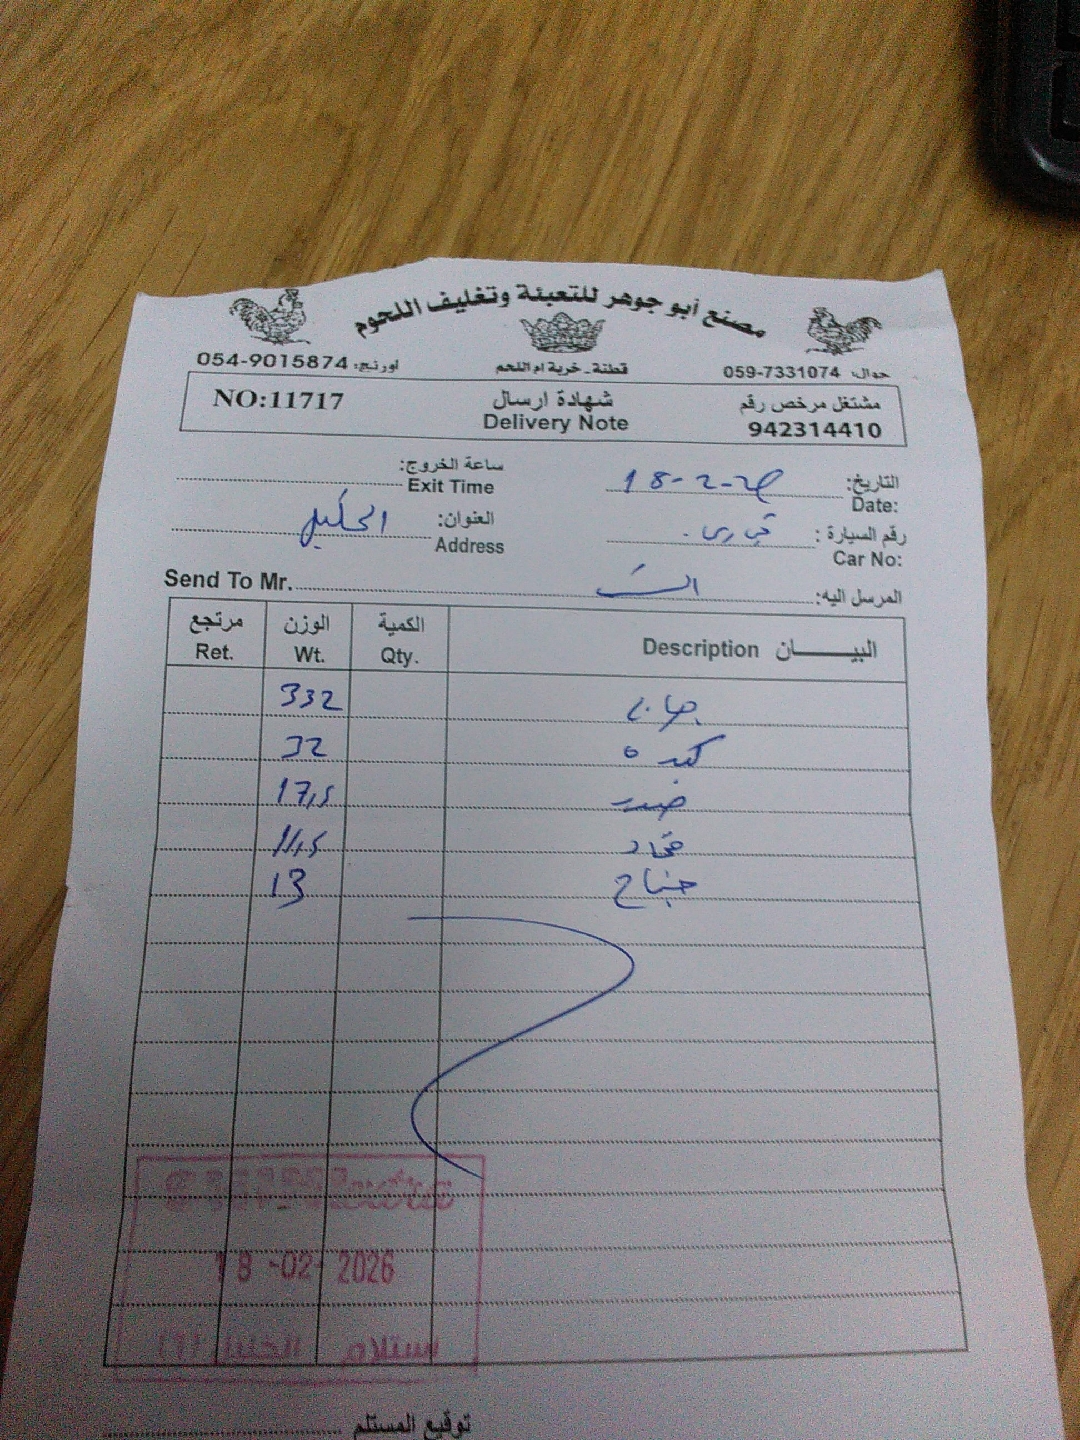 مصنع أبو جوهر للتعبئة وتغليف اللحوم
جوال: 059-7331074
قطنة - خربة ام اللحم
اورنج: 054-9015874
مشتغل مرخص رقم
942314410
شهادة ارسال
Delivery Note
NO:11717
التاريخ: 18-2-26
Date:
ساعة الخروج:
Exit Time
رقم السيارة :
Car No:
العنوان: الخليل
Address
المرسل اليه:
Send To Mr.
البيـــــان Description الكمية Qty. الوزن Wt. مرتجع Ret.
332
كبده 32
صدر 17,5
11,5
جناح 13
18 -02- 2026
استلام الخليل (1)
توقيع المستلم